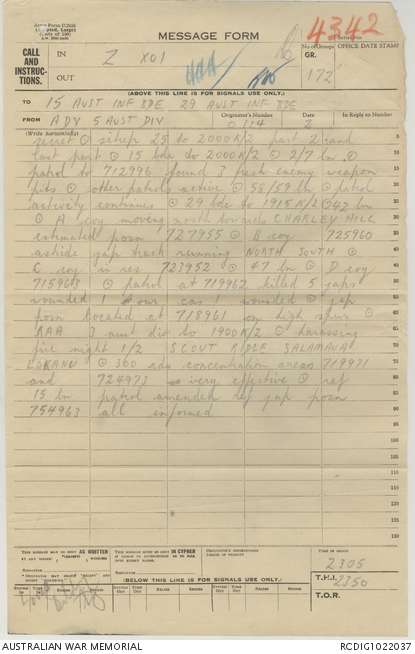 MESSAGE FORM
4342
CALL AND INSTRUCTIONS.
IN Z X01
OUT
GR. 172
OFFICE DATE STAMP
(ABOVE THIS LINE IS FOR SIGNALS USE ONLY.)
TO 15 AUST INF BDE 29 AUST INF BDE
FROM ADV 5 AUST DIV
Originator's Number Date In Reply to Number
O114 2
(Write horizontally)
secret ⊙ sitrep 25 to 2000K/2 part 2 and
last part ⊙ 15 bde to 2000K/2 ⊙ 2/7 bn ⊙
patrol to 712996 found 3 fresh enemy weapon
pits ⊙ other patrols active ⊙ 58/59 bn ⊙ patrol
activity continues ⊙ 29 bde to 1915K/2 ⊙ 42 bn
⊙ A coy moving north towards CHARLEY HILL
estimated posn 727955 ⊙ B coy 725960
astride jap track running NORTH SOUTH ⊙
C coy in res 723952 ⊙ 47 bn ⊙ D coy
715963 ⊙ patrol at 719962 killed 5 japs
wounded 1 ⊙ our cas 1 wounded ⊙ jap
posn located at 718961 on high spur ⊙
RAA 3 aust div to 1900K/2 ⊙ harassing
fire night 1/2 SCOUT RIDGE SALAMAUA
LOKANU ⊙ 360 rds concentration areas 719971
and 724973 very effective ⊙ ref
15 bn patrol amended ref jap posn
754963 all informed
THIS MESSAGE MAY BE SENT AS WRITTEN
THIS MESSAGE MUST BE SENT IN CYPHER
(BELOW THIS LINE IS FOR SIGNALS USE ONLY.)
2305
T.H.I. 2350
T.O.R.
AUSTRALIAN WAR MEMORIAL RCDIG1022037